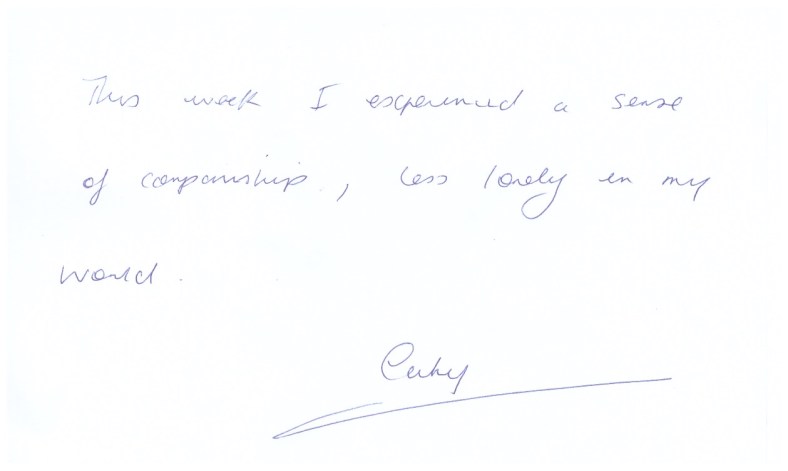 This week I experienced a sense
of companionship, less lonely in my
world.